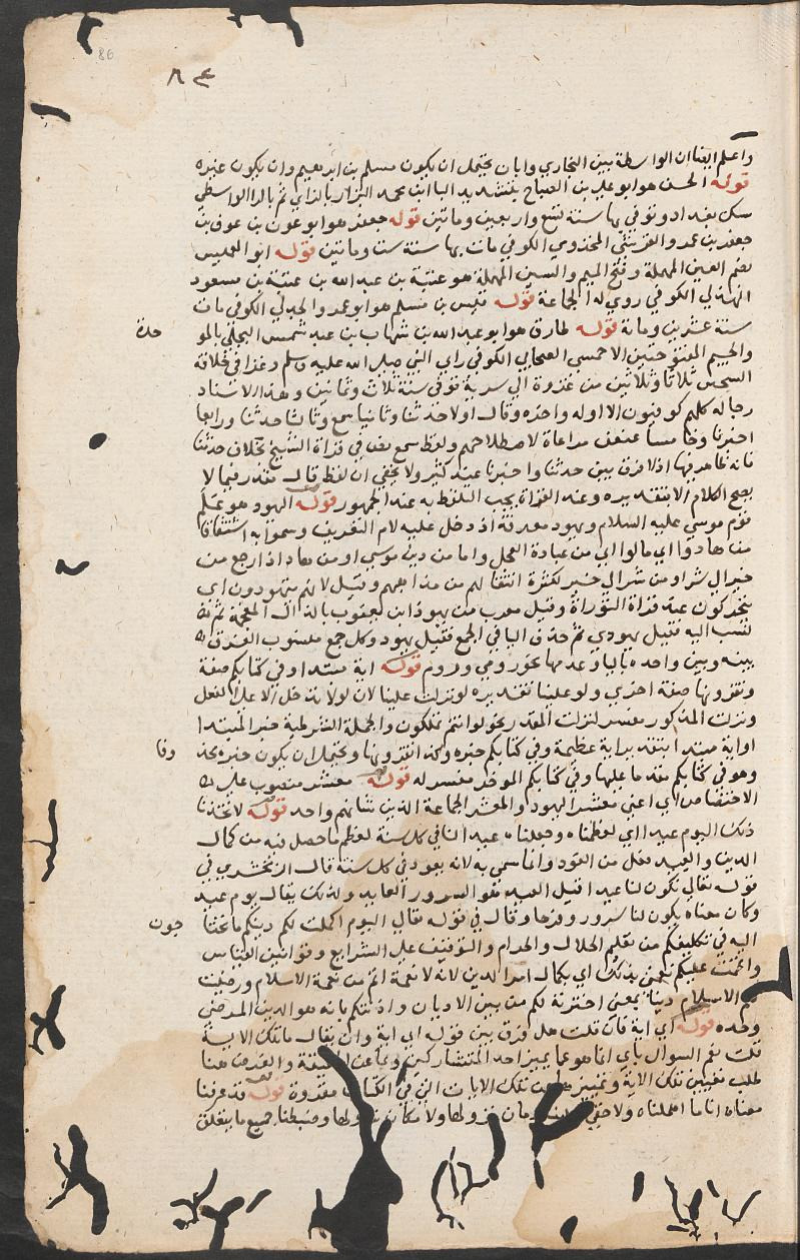 86
٨٤
واعلم ايضا ان الواسطة بين البخاري وابان يحتمل ان يكون مسلم بن ابرهيم وان يكون غيره
قوله الحسن هو ابو علي بن الصباح بتشديد البا ابن محمد البزار بالزاي ثم بالرا الواسطي
سكن بغداد وتوفي بها سنة تسع واربعين وماتين قوله جعفر هو ابو عون بن عوف بن
جعفر بن عمرو القرشي المخزومي الكوفي مات بها سنة ست وماتين قوله ابو العميس
بضم العين المهملة وفتح الميم والسين المهملة هو عتبة بن عبد الله بن عتبة بن مسعود
الهذلي الكوفي روي له الجماعة قوله قيس بن مسلم هو ابو عمرو الجدلي الكوفي مات
سنة عشرين وماية قوله طارق هو ابو عبد الله بن شهاب بن عبد شمس البجلي بالمو
حدة
والجيم المفتوحتين الاحمسي الصحابي الكوفي راي النبي صلي الله عليه وسلم وغزا في خلافة
الشيخين ثلاثا وثلاثين من غزوة الي سرية توفي سنة ثلاث وثمانين وهذا الاسناد
رجاله كلهم كوفيون الا اوله واحده وقال اولا حدثنا وثانيا سمع وثالثا حدثنا ورابعا
اخبرنا وخامسا عنعن مراعاة لاصطلاحهم ولفظ سمع نص في قراة الشيخ بخلاف حدثنا
فانه ظاهر فيها اذ لا فرق بين حدثنا واخبرنا عند كثير ولا يخفي ان لفظ قال مقدر فيما لا
يصح الكلام الا بتقديره وعند القراة يجب التلفظ به عند الجمهور قوله اليهود هو علم
قوم موسي عليه السلام ويهود معرفة اذ دخل عليه لام التعريف وسموا به اشتقاقا
من هادوا اي مالوا اي من عبادة العجل واما من دين موسي او من هاد اذا رجع من
خير الي شر او من شر الي خير لكثرة انتقالهم من مذاهبهم وقيل لانهم يتهودون اي
يتحركون عند قراة التوراة وقيل معرب من يهوذا بن يعقوب بالذال المعجمة ثم
نسب اليه فقيل يهودي ثم حذف اليا في الجمع فقيل يهود وكل جمع منسوب الفرق
بينه وبين واحده باليا وعدمها نحو رومي وروم قوله اية مبتدا وفي كتابكم صفة
وتقرونها صفة اخري ولو علينا تقديره لو نزلت علينا لان لو لا تدخل الا علي الفعل
ونزلت المذكور مفسر لنزلت المقدر نحو لو انتم تملكون والجملة الشرطية خبر المبتدا
او اية مبتدا بتقدير اية عظيمة وفي كتابكم خبره وكذا تقرونها ويحتمل ان يكون خبره محذ
وفا
وهو في كتابكم مقدما عليها وفي كتابكم الموخر مفسر له قوله معشر منصوب علي
الاختصاص اي اعني معشر اليهود والمعشر الجماعة الذين شانهم واحد قوله لاتخذنا
ذلك اليوم عيدا اي لعظمناه وجعلناه عيدا لنا في كل سنة لعظم ما حصل فيه من كمال
الدين والعيد فعل من العود وانما سمي به لانه يعود في كل سنة قال الزمخشري في
قوله تعالي تكون لنا عيدا قيل العيد هو السرور العايد ولذلك يقال يوم عيد
وكان معناه يكون لنا سرورا وفرحا وقال في قوله تعالي اليوم اكملت لكم دينكم ما تحتا
جون
اليه في تكليفكم من تعليم الحلال والحرام والتوقيف علي الشرايع وقوانين القياس
واتممت عليكم نعمتي بذلك اي بكمال امر الدين لانه لا نعمة اتم من نعمة الاسلام ورضيت
لكم الاسلام دينا يعني اخترته لكم من بين الاديان واذنتكم بانه هو الدين المرضي
وحده قوله اي اية فان قلت هل فرق بين قوله اي اية وان يقال ما تلك الاية
قلت نعم السوال باي انما هو عما يميز احد المتشاركين وبما عن الحقيقة والغرض هنا
طلب تعيين تلك الاية وتمييزها عن تلك الايات التي في الكتاب مقروة قوله قد عرفنا
معناه انا ما اهملناه ولا خفي زمان نزولها ولا مكان نزولها وضبطنا جميع ما يتعلق